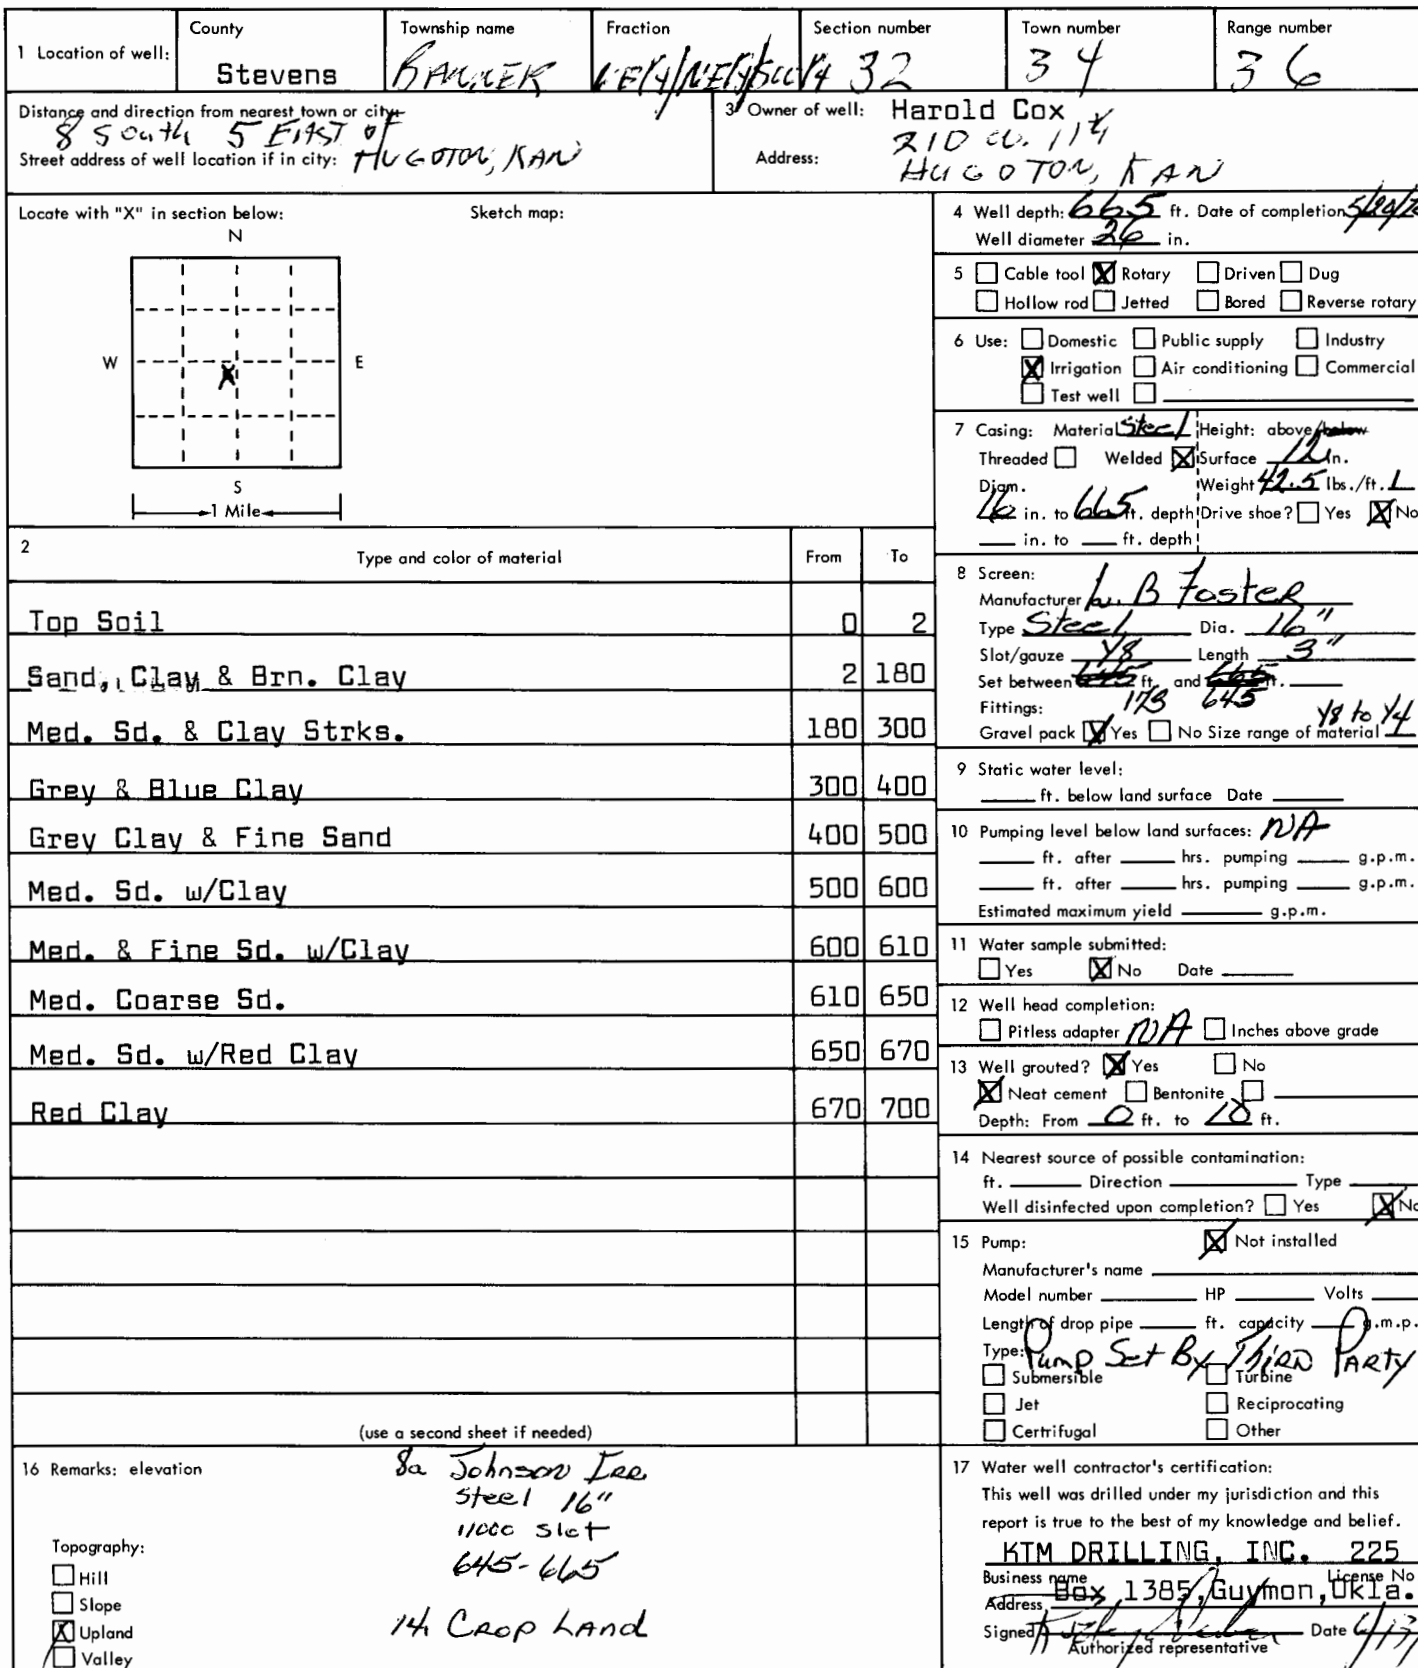 1 Location of well:
County
Stevens
Township name
BANNER
Fraction
NE1/4/NE1/4/SW1/4
Section number
32
Town number
34
Range number
36
Distance and direction from nearest town or city
8 South 5 EAST of
Street address of well location if in city: HUGOTON, KAN
3 Owner of well: Harold Cox
210 W. 11th
Address:
HUGOTON, KAN
Locate with "X" in section below:
Sketch map:
N
W
X
E
S
1 Mile
2
Type and color of material From To
Top Soil 0 2
Sand, Clay & Brn. Clay 2 180
Med. Sd. & Clay Strks. 180 300
Grey & Blue Clay 300 400
Grey Clay & Fine Sand 400 500
Med. Sd. w/Clay 500 600
Med. & Fine Sd. w/Clay 600 610
Med. Coarse Sd. 610 650
Med. Sd. w/Red Clay 650 670
Red Clay 670 700
(use a second sheet if needed)
4 Well depth: 665 ft. Date of completion
Well diameter 26 in.
5 Cable tool X Rotary Driven Dug
Hollow rod Jetted Bored Reverse rotary
6 Use: Domestic Public supply Industry
X Irrigation Air conditioning Commercial
Test well
7 Casing: Material Steel Height: above/below
Threaded Welded X Surface 12 in.
Diam. Weight 42.5 lbs./ft.
16 in. to 665 ft. depth Drive shoe? Yes X No
in. to ft. depth
8 Screen:
Manufacturer L. B Foster
Type Steel Dia. 16"
Slot/gauze 1/8 Length 3"
Set between ft. and ft.
Fittings: 173 645
1/8 to 1/4
Gravel pack X Yes No Size range of material
9 Static water level:
ft. below land surface Date
10 Pumping level below land surfaces: NA
ft. after hrs. pumping g.p.m.
ft. after hrs. pumping g.p.m.
Estimated maximum yield g.p.m.
11 Water sample submitted:
Yes X No Date
12 Well head completion:
Pitless adapter NA Inches above grade
13 Well grouted? X Yes No
X Neat cement Bentonite
Depth: From 0 ft. to 10 ft.
14 Nearest source of possible contamination:
ft. Direction Type
Well disinfected upon completion? Yes X No
15 Pump: X Not installed
Manufacturer's name
Model number HP Volts
Length of drop pipe ft. capacity g.m.p.
Type: Pump Set By Third PARTY
Submersible Turbine
Jet Reciprocating
Certrifugal Other
16 Remarks: elevation
8a Johnson Irr.
Steel 16"
slot
645-665
14 CROP LAND
Topography:
Hill
Slope
X Upland
Valley
17 Water well contractor's certification:
This well was drilled under my jurisdiction and this
report is true to the best of my knowledge and belief.
KTM DRILLING, INC. 225
Business name License No
Address Box 1385, Guymon, Okla.
Signed Date 6/13/
Authorized representative